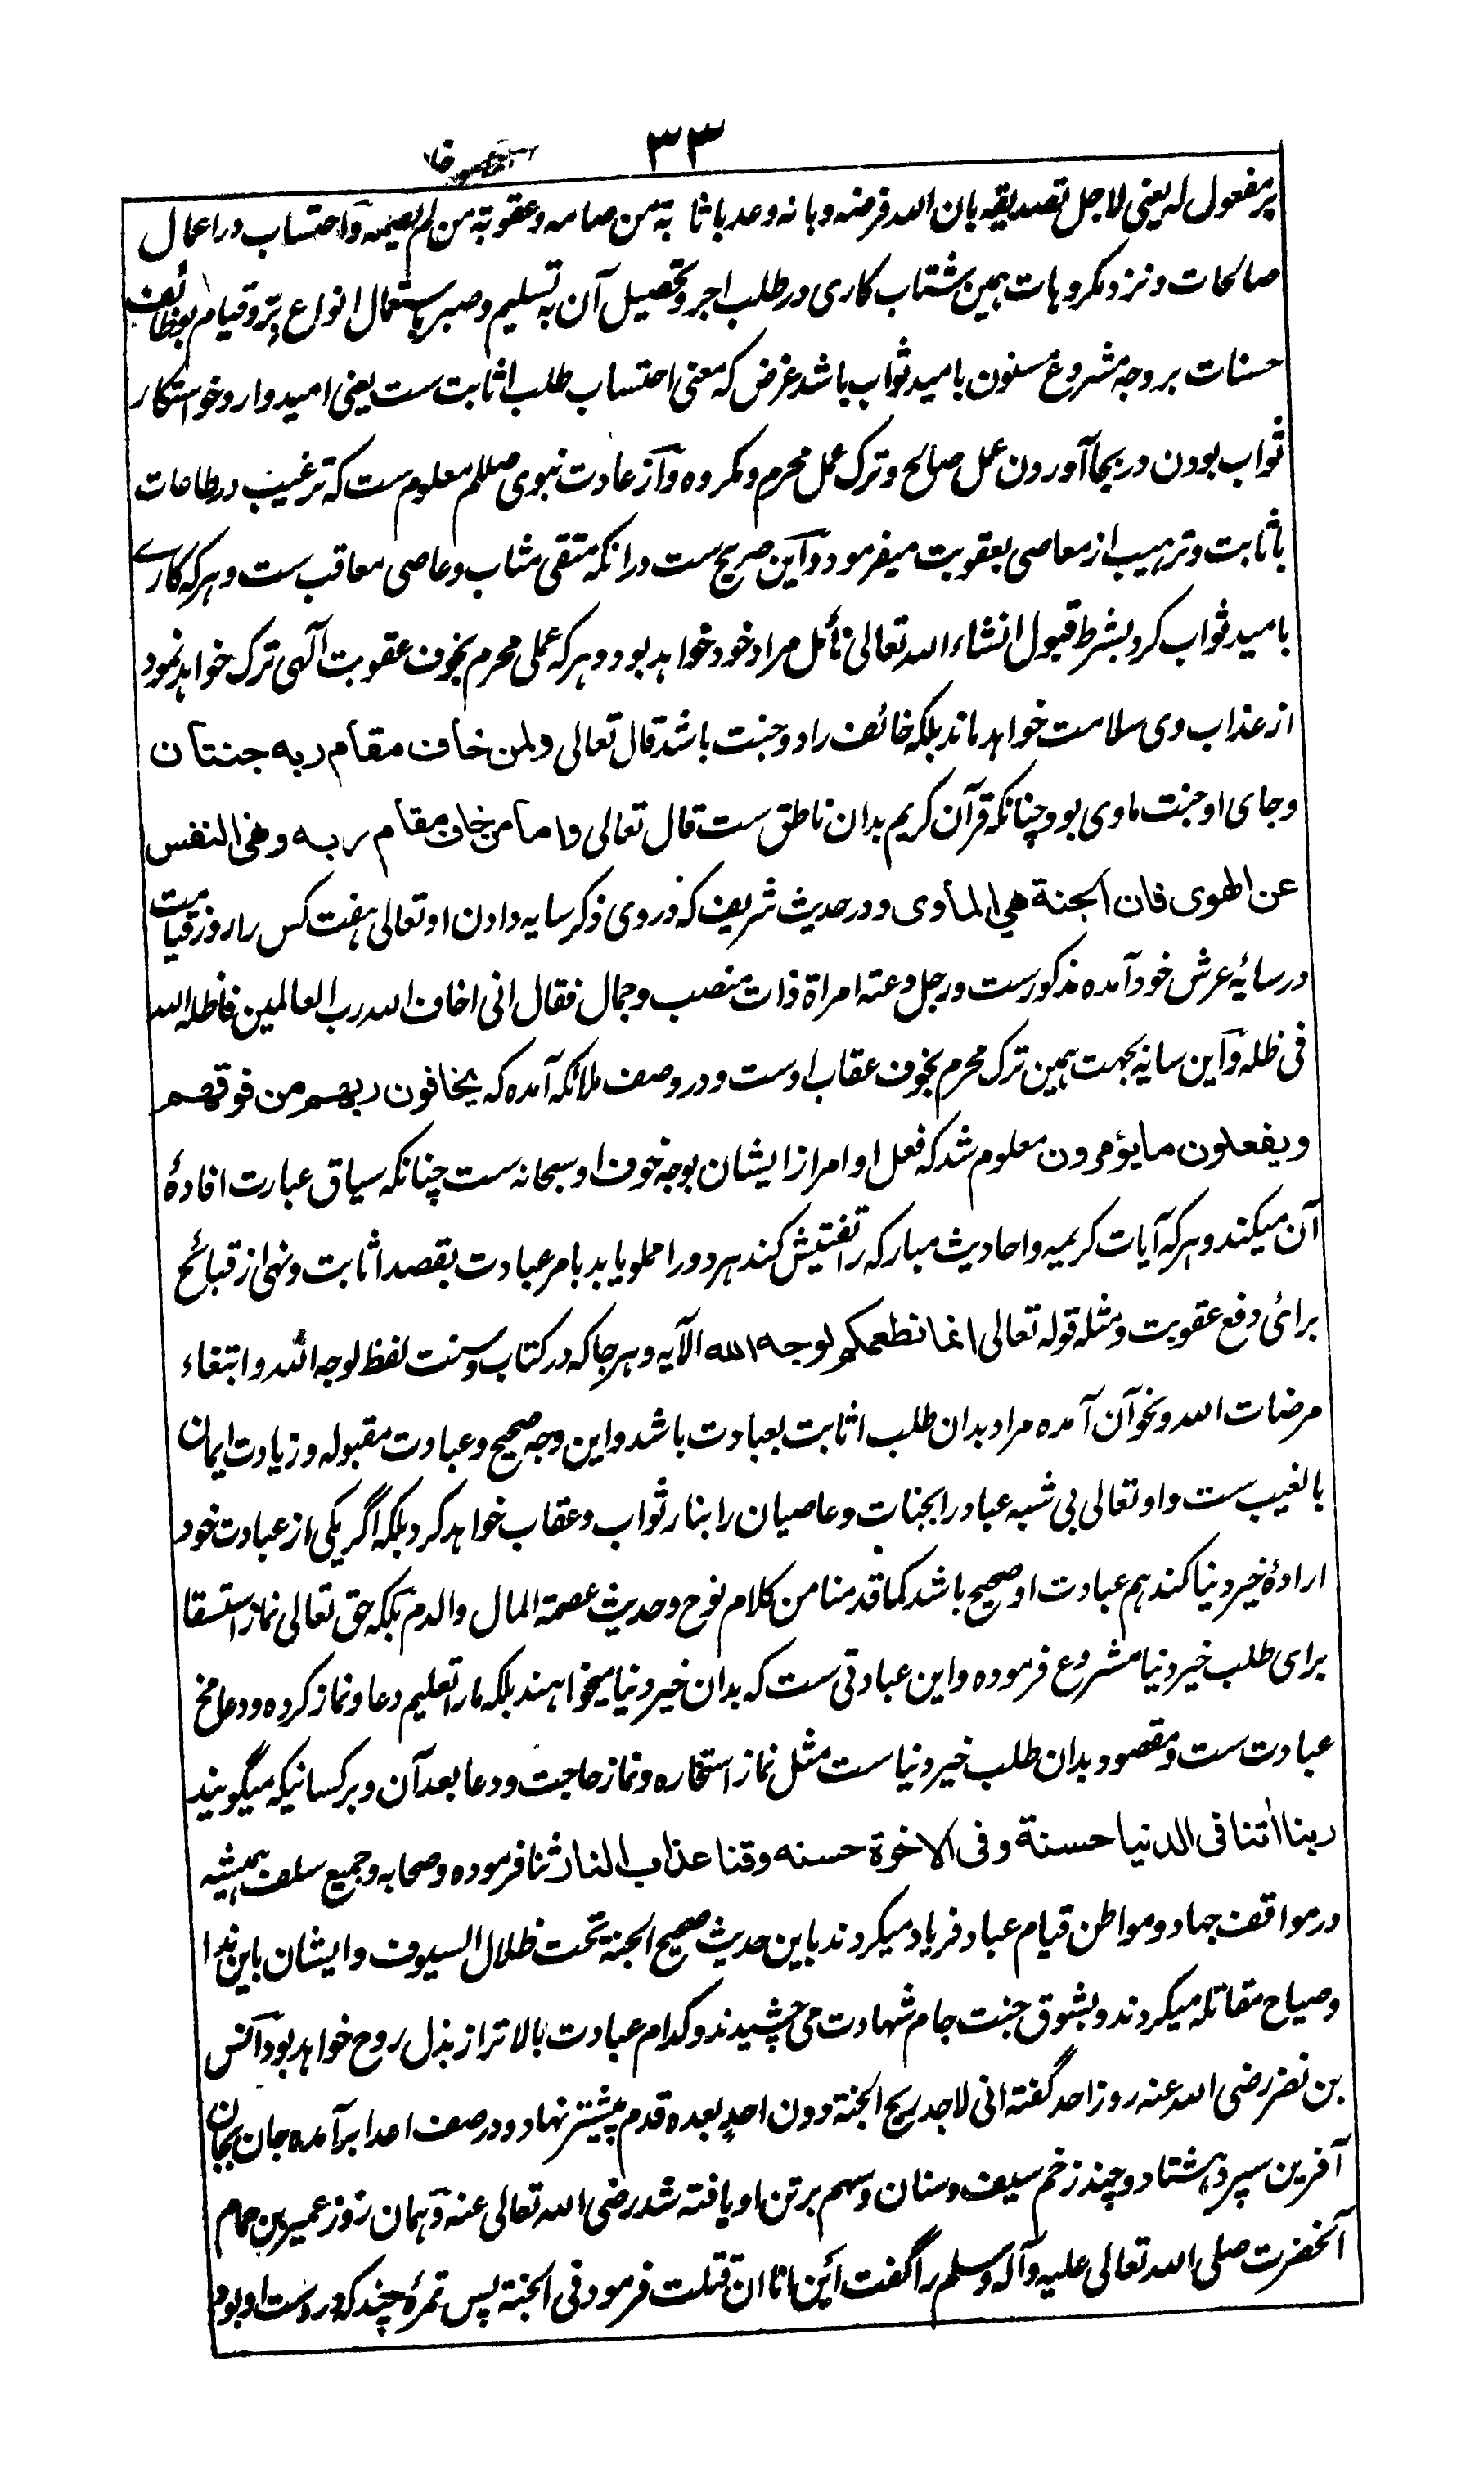 ۳۳
بر مفعول له یعنی لاجل تصدیقه بان الله فرضه و بانه وعد باثابة من صامه و عقوبة من لم یصمه و احتساب در اعمال
صالحات و نزد مکروهات همین شتاب کاری در طلب اجر و تحصیل آن به تسلیم و صبر باستعمال انواع برّ و قیام بوظائف
حسنات بر وجه مشروع مسنون بامید ثواب باشد غرض که معنی احتساب طلب اثابت ست یعنی امیدوار و خواستگار
ثواب بودن در بجا آوردن عمل صالح و ترک عمل محرم و مکروه و از عادت نبوی صللم معلوم ست که ترغیب در طاعات
باثابت و ترهیب از معاصی بعقوبت میفرمود و این صریح ست در انکه متقی مثاب و عاصی معاقب ست و هر که کارے
بامید ثواب کرد بشرط قبول انشاء الله تعالی نائل مراد خود خواهد بود و هر که عملی محرم بخوف عقوبت آلهی ترک خواهد نمود
از عذاب وی سلامت خواهد ماند بلکه خائف را دو جنت باشد قال تعالی ولمن خاف مقام ربه جنتان
و جای او جنت ماوی بود چنانکه قرآن کریم بدان ناطق ست قال تعالی واما من خاف مقام ربه و نهی النفس
عن الهوی فان الجنة هی الماوی و در حدیث شریف که در وی ذکر سایه دادن او تعالی هفت کس را روز قیامت
در سایهٔ عرش خود آمده مذکورست و رجل دعته امراة ذات منصب و جمال فقال انی اخاف الله رب العالمین فاظله الله
فی ظله و این سایه بجهت همین ترک محرم بخوف عقاب اوست و در وصف ملائکه آمده که یخافون ربهم من فوقهم
ویفعلون ما یؤمرون معلوم شد که فعل اوامر از ایشان بوجه خوف او سبحانه ست چنانکه سیاق عبارت افادهٔ
آن میکند و هر که آیات کریمه و احادیث مبارکه را تفتیش کند هر دو را مملو یابد بامر عبادت بقصد اثابت و نهی از قبائح
برائ دفع عقوبت و مثله قوله تعالی انما نطعمکم لوجه الله الآیه و هر جا که در کتاب و سنت لفظ لوجه الله و ابتغاء
مرضات الله و نحو آن آمده مراد بدان طلب اثابت بعبادت باشد و این وجه صحیح و عبادت مقبوله و زیادت ایمان
بالغیب ست و او تعالی بی شبه عباد را بجنات و عاصیان را بنار ثواب و عقاب خواهد کرد بلکه اگر یکی از عبادت خود
ارادهٔ خیر دنیا کند هم عبادت او صحیح باشد کما قدمنا من کلام نوح و حدیث عصمة المال والدم بلکه حق تعالی نماز استسقا
برای طلب خیر دنیا مشروع فرموده و این عبادتی ست که بدان خیر دنیا میخواهند بلکه ما را تعلیم دعا و نماز کرده و دعا مخ
عبادت ست و مقصود بدان طلب خیر دنیاست مثل نماز استخاره و نماز حاجت و دعا بعد آن و بر کسانیکه میگویند
ربنا اتنا فی الدنیا حسنة و فی الاخرة حسنه وقنا عذاب النار ثنا فرموده و صحابه و جمیع سلف همیشه
در مواقف جهاد و مواطن قیام عباد فریاد میکردند باین حدیث صحیح الجنة تحت ظلال السیوف و ایشان باین ندا
و صیاح مقاتله میکردند و بشوق جنت جام شهادت می چشیدند و کدام عبادت بالاتر از بذل روح خواهد بود آنس
بن نضر رضی الله عنه روز احد گفته انی لاجد ریح الجنة دون احد بعده قدم پیشتر نهاد و در صف اعدا برآمده جان بجان
آفرین سپرد هشتاد و چند زخم سیف و سنان و سهم بر تن او یافته شد رضی الله تعالی عنه و همان روز عمیر بن حمام
آنحضرت صلی الله تعالی علیه وآله وسلم را گفت این انا ان قتلت فرمود فی الجنة پس تمرهٔ چند که در دست او بود